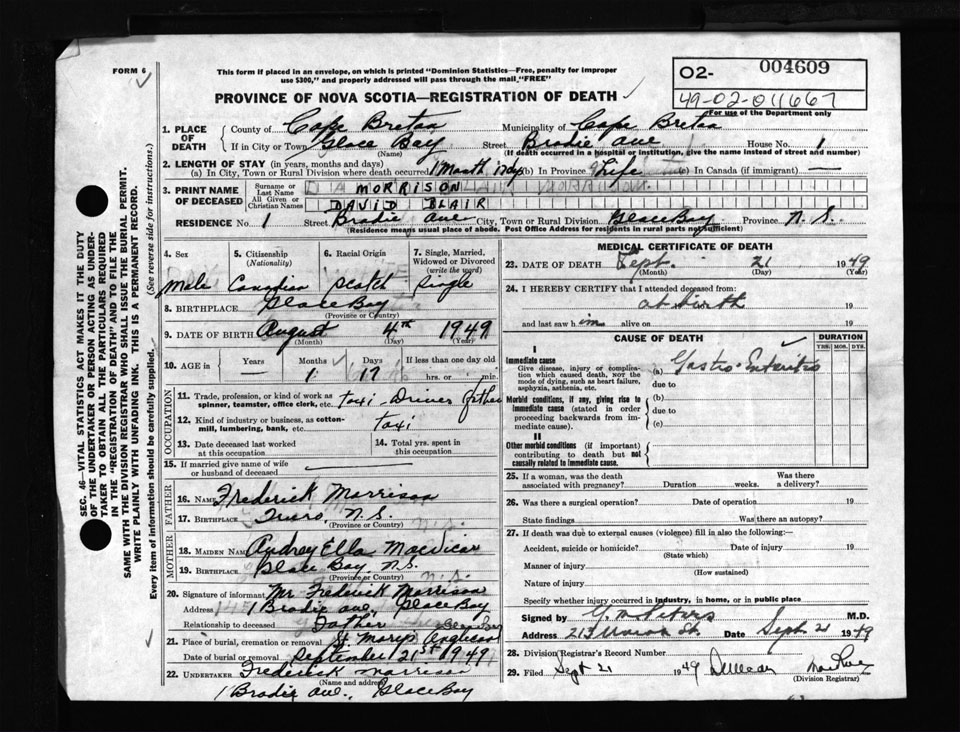 FORM 6
This form if placed in an envelope, on which is printed "Dominion Statistics—Free, penalty for improper
use $300," and properly addressed will pass through the mail, "FREE"
PROVINCE OF NOVA SCOTIA—REGISTRATION OF DEATH
02- 004609
49-02-011667
For use of the Department only
1. PLACE OF DEATH County of Cape Breton Municipality of Cape Breton
If in City or Town Glace Bay (Name) Street Brodie Ave House No. 1
(If death occurred in a hospital or institution, give the name instead of street and number)
2. LENGTH OF STAY (in years, months and days)
(a) In City, Town or Rural Division where death occurred 1 Month 17 dys (b) In Province Life (c) In Canada (if immigrant) —
3. PRINT NAME OF DECEASED Surname or Last Name MORRISON
All Given or Christian Names DAVID BLAIR
RESIDENCE No. 1 Street Brodie Ave City, Town or Rural Division Glace Bay Province N.S.
(Residence means usual place of abode. Post Office Address for residents in rural parts not sufficient)
4. Sex Male
5. Citizenship (Nationality) Canadian
6. Racial Origin Scotch
7. Single, Married, Widowed or Divorced (write the word) Single
8. BIRTHPLACE Glace Bay (Province or Country)
9. DATE OF BIRTH August (Month) 4th (Day) 1949 (Year)
10. AGE in Years — Months 1 Days 17 If less than one day old hrs. or min.
OCCUPATION
11. Trade, profession, or kind of work as spinner, teamster, office clerk, etc. taxi Driver father
12. Kind of industry or business, as cotton-mill, lumbering, bank, etc. taxi
13. Date deceased last worked at this occupation
14. Total yrs. spent in this occupation
15. If married give name of wife or husband of deceased
FATHER
16. Name Frederick Morrison
17. Birthplace Truro, N.S. (Province or Country)
MOTHER
18. Maiden Name Audrey Ella
19. Birthplace Glace Bay N.S. (Province or Country)
20. Signature of informant Mr Frederick Morrison
Address 1 Brodie ave, Glace Bay
Relationship to deceased Father
21. Place of burial, cremation or removal St Marys Anglican
Date of burial or removal September 21st 1949
22. UNDERTAKER Frederick Morrison
(Name and address)
1 Brodie ave. Glace Bay
MEDICAL CERTIFICATE OF DEATH
23. DATE OF DEATH Sept. (Month) 21 (Day) 1949 (Year)
24. I HEREBY CERTIFY that I attended deceased from:
at birth 19
and last saw him alive on 19
CAUSE OF DEATH DURATION
YRS. MOS. DYS.
I
Immediate cause (a) Gastro-Enteritis
Give disease, injury or complication which caused death, not the mode of dying, such as heart failure, asphyxia, asthenia, etc. due to
Morbid conditions, if any, giving rise to immediate cause (stated in order proceeding backwards from immediate cause). (b) due to (c)
II
Other morbid conditions (if important) contributing to death but not causally related to immediate cause.
25. If a woman, was the death associated with pregnancy? Duration weeks. Was there a delivery?
26. Was there a surgical operation? Date of operation 19
State findings Was there an autopsy?
27. If death was due to external causes (violence) fill in also the following:—
Accident, suicide or homicide? (State which) Date of injury 19
Manner of injury (How sustained)
Nature of injury
Specify whether injury occurred in industry, in home, or in public place
Signed by M.D.
Address Date Sept 21 1949
28. Division Registrar's Record Number
29. Filed Sept 21 1949
(Division Registrar)
SEC. 46—VITAL STATISTICS ACT MAKES IT THE DUTY
OF THE UNDERTAKER OR PERSON ACTING AS UNDER-
TAKER TO OBTAIN ALL THE PARTICULARS REQUIRED
IN THE "REGISTRATION OF DEATH" AND TO FILE THE
SAME WITH THE DIVISION REGISTRAR WHO SHALL ISSUE THE BURIAL PERMIT.
WRITE PLAINLY WITH UNFADING INK. THIS IS A PERMANENT RECORD.
Every item of information should be carefully supplied. (See reverse side for instructions.)